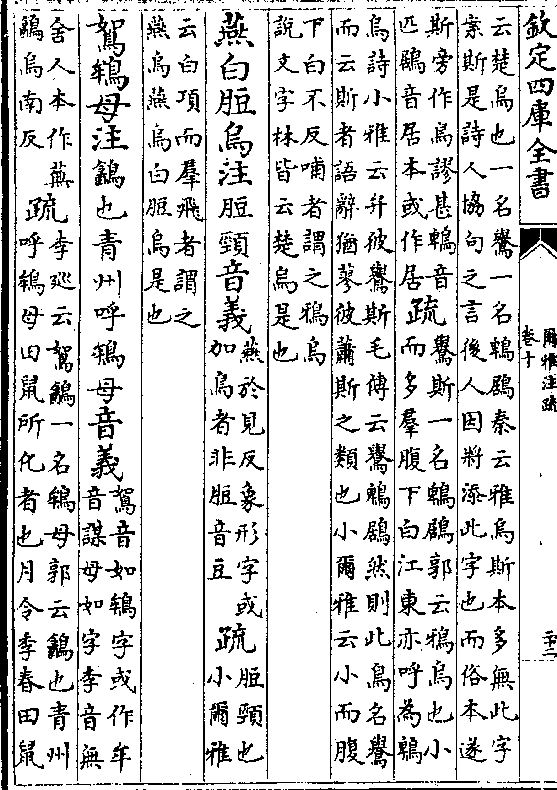 欽定四庫全書
爾雅注疏
卷十
二十二
云楚烏也一名鸒一名鵯鶋秦云雅烏斯本多無此字
案斯是詩人協句之言後人因將添此字也而俗本遂
斯旁作鳥謬甚鵯音
匹鶋音居本或作居
疏
鸒斯一名鵯鶋郭云鴉烏也小
而多羣腹下白江東亦呼為鵯
烏詩小雅云弁彼鸒斯毛傳云鸒鵯鶋然則此鳥名鸒
而云斯者語辭猶蓼彼蕭斯之類也小爾雅云小而腹
下白不反哺者謂之鴉烏
說文字林皆云楚烏是也
燕白脰烏注脰頸音義
燕於見反象形字或
加鳥者非脰音豆
疏
脰頸也
小爾雅
云白項而羣飛者謂之
燕烏燕烏白脰烏是也
鴽鴾母注鷯也青州呼鴾母音義
鴽音如鴾字或作牟
音謀母如字李音無
舍人本作蕪
鷯烏南反
疏
李廵云鴽鷯一名鴾母郭云鷯也青州
呼鴾母田鼠所化者也月令季春田鼠